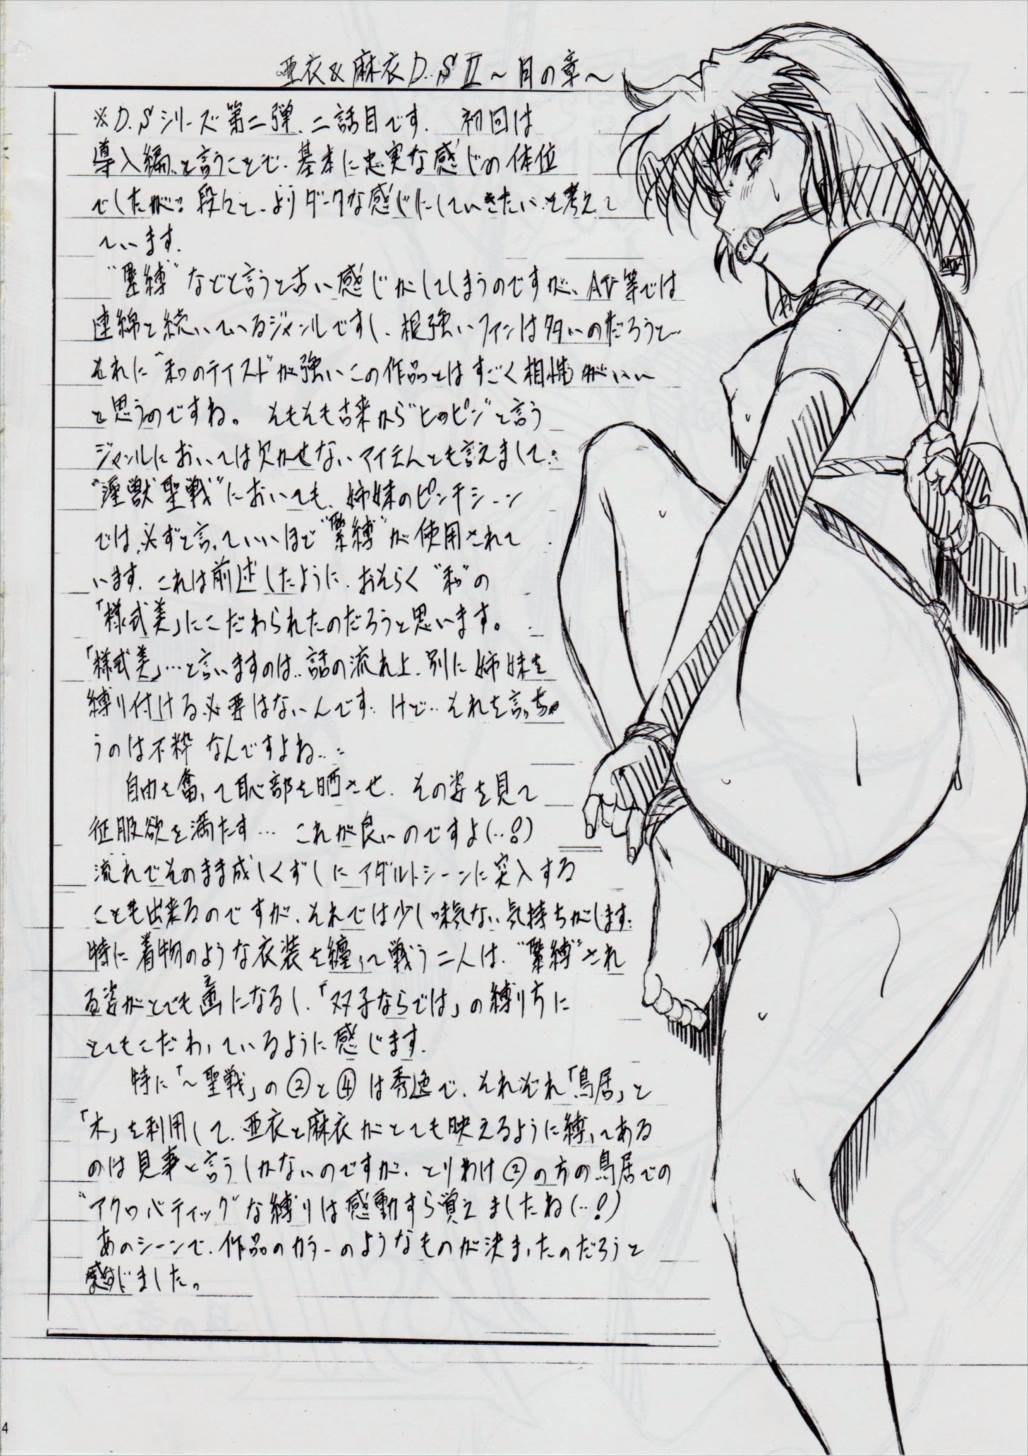 亜衣&麻衣D.SⅡ~月の章~
※D.Sシリーズ第二弾、二話目です. 初回は
導入編、と言うことで、基本に忠実な感じの体位
でしたが 段々と、よりダークな感じにしていきたい、と考えて
います.
"緊縛"などと言うと古い感じがしてしまうのですが、AV等では
連綿と続いているジャンルですし、根強いファンは多いのだろうと
それに"和"のテイストが強いこの作品とはすごく相性がいい
と思うのですね。 そもそも古来から"ヒロピン"と言う
ジャンルにおいては欠かせないアイテムとも言えまして
"淫獣聖戦"においても、姉妹のピンチシーン
では、必ずと言っていいほど"緊縛"が使用されて
います. これは前述したように、おそらく"和"の
「様式美」にこだわられたのだろうと思います。
「様式美」…と言いますのは、話の流れ上、別に姉妹を
縛り付ける必要はないんです. けど… それを言っちゃ
うのは不粋 なんですよね…
自由を奪って恥部を晒させ、その姿を見て
征服欲を満たす… これが良いのですよ(…!)
流れでそのまま成しくずしにアダルトシーンに突入する
ことも出来るのですが、それでは少し味気ない気持ちがします.
特に着物のような衣装を纏って戦う二人は、"緊縛"され
る姿がとても画になるし、「双子ならでは」の縛り方に
とてもこだわっているように感じます.
特に「~聖戦」の②と④は秀逸で、それぞれ「鳥居」と
「木」を利用して、亜衣と麻衣がとても映えるように縛ってある
のは見事と言うしかないのですが、とりわけ②の方の鳥居での
"アクロバティック"な縛りは感動すら覚えましたね(…!)
あのシーンで、作品のカラーのようなものが決まったのだろうと
感じました。
4